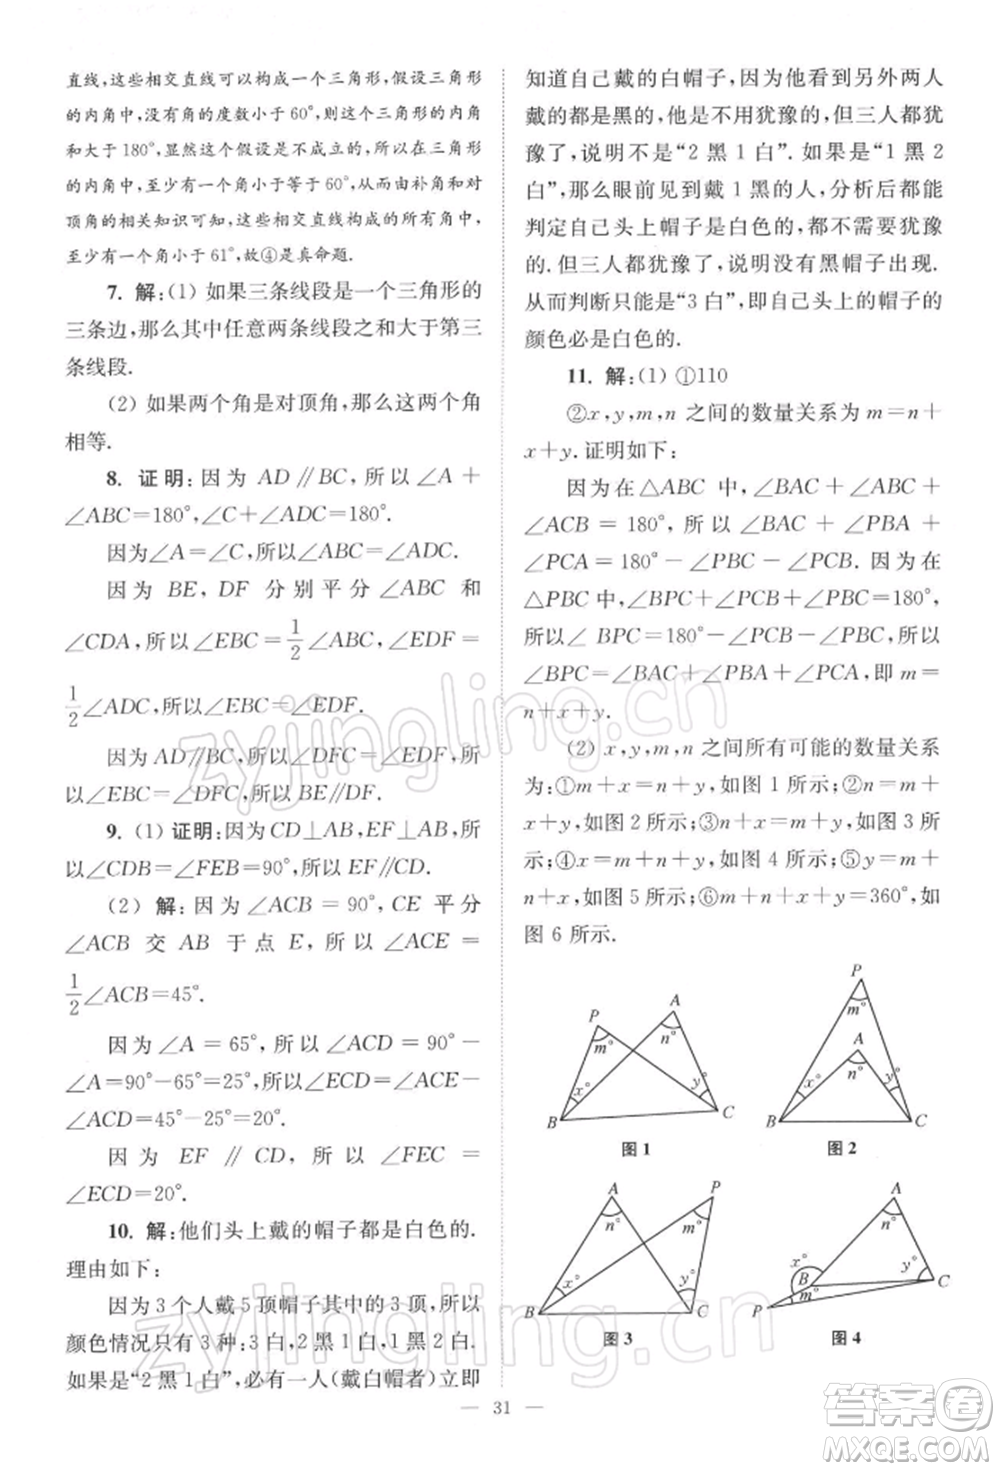 直线,这些相交直线可以构成一个三角形,假设三角形
的内角中,没有角的度数小于 60°,则这个三角形的内角
和大于 180°,显然这个假设是不成立的,所以在三角形
的内角中,至少有一个角小于等于 60°,从而由补角和对
顶角的相关知识可知,这些相交直线构成的所有角中,
至少有一个角小于 61°,故④是真命题.
7. 解:(1) 如果三条线段是一个三角形的
三条边,那么其中任意两条线段之和大于第三
条线段.
(2) 如果两个角是对顶角,那么这两个角
相等.
8. 证明:因为 AD∥BC,所以∠A+
∠ABC=180°,∠C+∠ADC=180°.
因为∠A=∠C,所以∠ABC=∠ADC.
因为 BE, DF 分别平分∠ABC 和
∠CDA,所以∠EBC=1/2∠ABC,∠EDF=
1/2∠ADC,所以∠EBC=∠EDF.
因为AD∥BC,所以∠DFC=∠EDF,所
以∠EBC=∠DFC,所以BE∥DF.
9. (1) 证明:因为CD⊥AB,EF⊥AB,所
以∠CDB=∠FEB=90°,所以EF∥CD.
(2) 解:因为∠ACB=90°,CE 平分
∠ACB 交 AB 于点 E,所以∠ACE=
1/2∠ACB=45°.
因为∠A=65°,所以∠ACD=90°-
∠A=90°-65°=25°,所以∠ECD=∠ACE-
∠ACD=45°-25°=20°.
因为 EF∥CD,所以∠FEC=
∠ECD=20°.
10. 解:他们头上戴的帽子都是白色的.
理由如下:
因为3个人戴5顶帽子其中的3顶,所以
颜色情况只有3种:3白,2黑1白,1黑2白.
如果是“2黑1白”,必有一人(戴白帽者)立即
知道自己戴的白帽子,因为他看到另外两人
戴的都是黑的,他是不用犹豫的.但三人都犹
豫了,说明不是“2黑1白”.如果是“1黑2
白”,那么眼前见到戴1黑的人,分析后都能
判定自己头上帽子是白色的,都不需要犹豫
的.但三人都犹豫了,说明没有黑帽子出现.
从而判断只能是“3白”,即自己头上的帽子的
颜色必是白色的.
11. 解:(1) ①110
②x,y,m,n 之间的数量关系为 m=n+
x+y.证明如下:
因为在△ABC 中,∠BAC+∠ABC+
∠ACB=180°,所以∠BAC+∠PBA+
∠PCA=180°-∠PBC-∠PCB.因为在
△PBC中,∠BPC+∠PBC+∠PCB=180°,
所以∠BPC=180°-∠PBC-∠PCB,所以
∠BPC=∠BAC+∠PBA+∠PCA,即 m=
n+x+y.
(2) x,y,m,n 之间所有可能的数量关系
为:①m+x=n+y,如图1所示;②n=m+
x+y,如图2所示;③n+x=m+y,如图3所
示;④x=m+n+y,如图4所示;⑤y=m+
n+x,如图5所示;⑥m+n+x+y=360°,如
图6所示.
P A m° n° x° y° B C
图1
P m° A n° x° y° B C
图2
A P n° m° x° y° B C
图3
A n° x° B y° C m° P
图4
31
zyjingling.cn
zyjingling.cn
答案卷
MXQE.COM